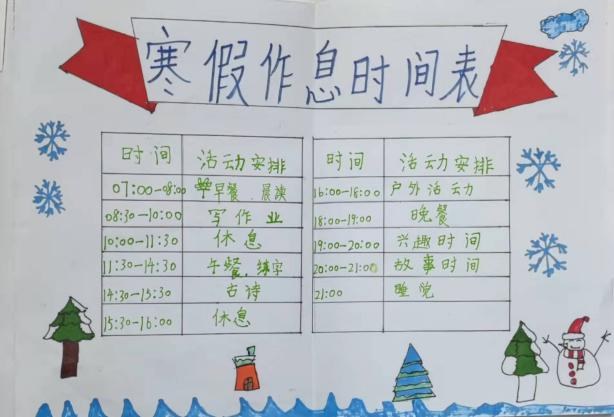 寒假作息时间表
时间 活动安排
07:00-08:00 早餐、晨读
08:30-10:00 写作业
10:00-11:30 休息
11:30-14:30 午餐、练字
14:30-15:30 古诗
15:30-16:00 休息
时间 活动安排
16:00-18:00 户外活动
18:00-19:00 晚餐
19:00-20:00 兴趣时间
20:00-21:00 故事时间
21:00 睡觉